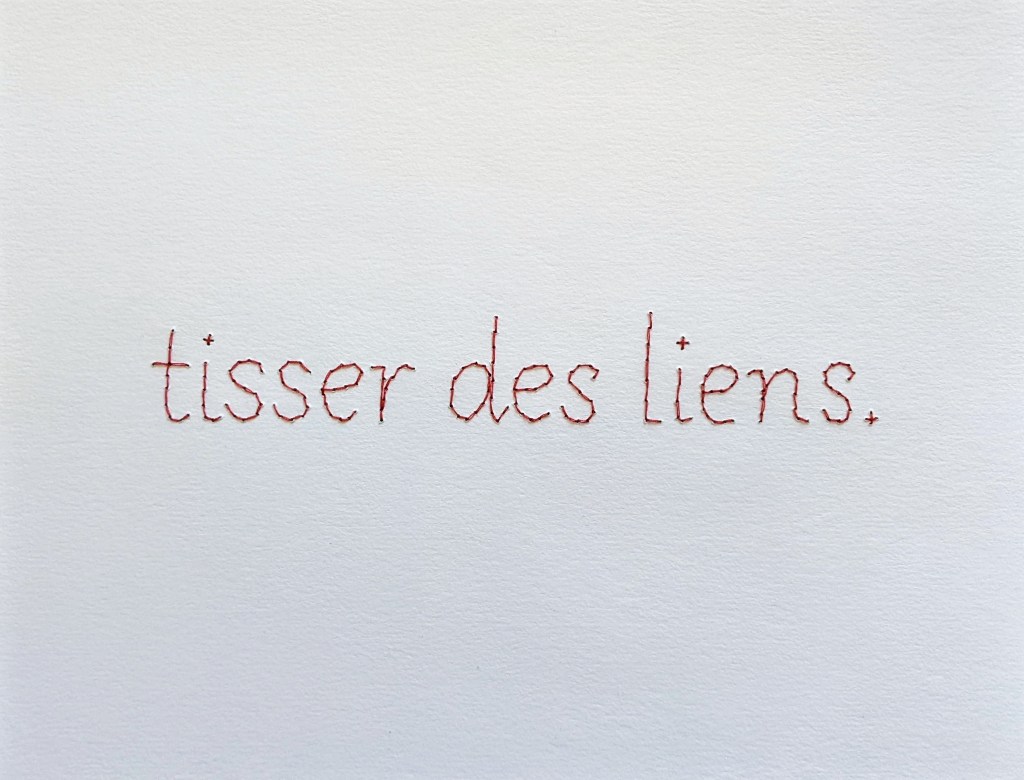 tisser des liens.